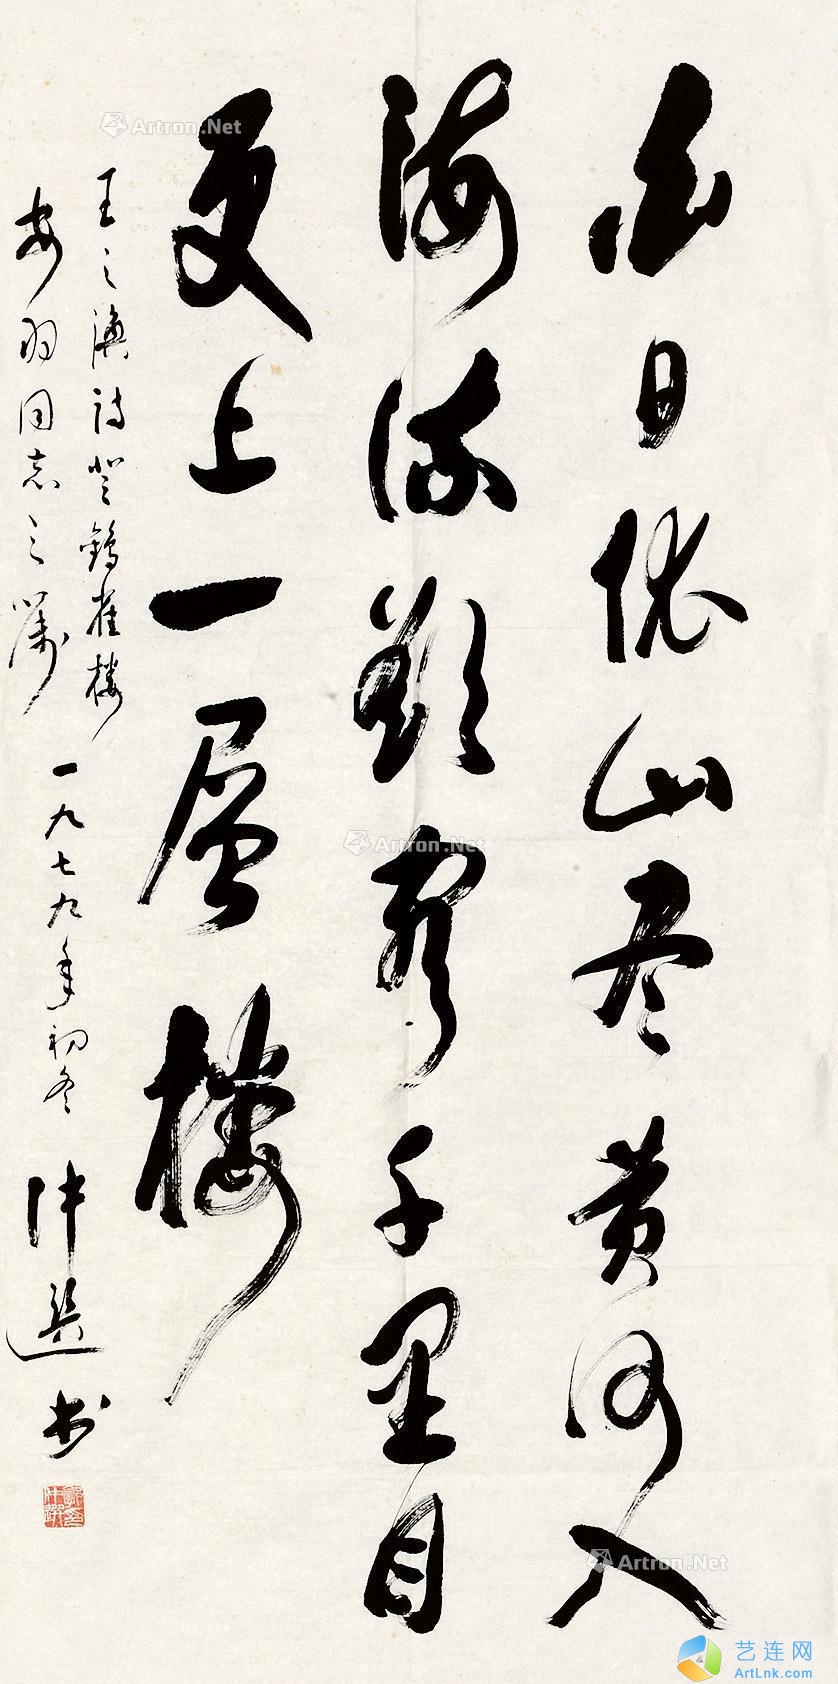 白日依山尽黄河入
海流欲穷千里目
更上一层楼
王之涣诗登鹳雀楼
同志之嘱 一九七九年初冬 仲选书
Artron.Net
Artron.Net
Artron.Net
艺连网
ArtLnk.com